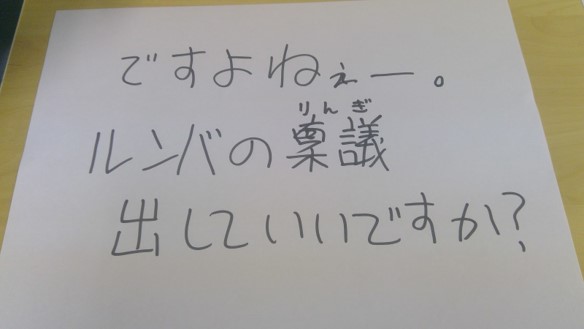 ですよねぇー。
りんぎ
ルンバの稟議
出していいですか?